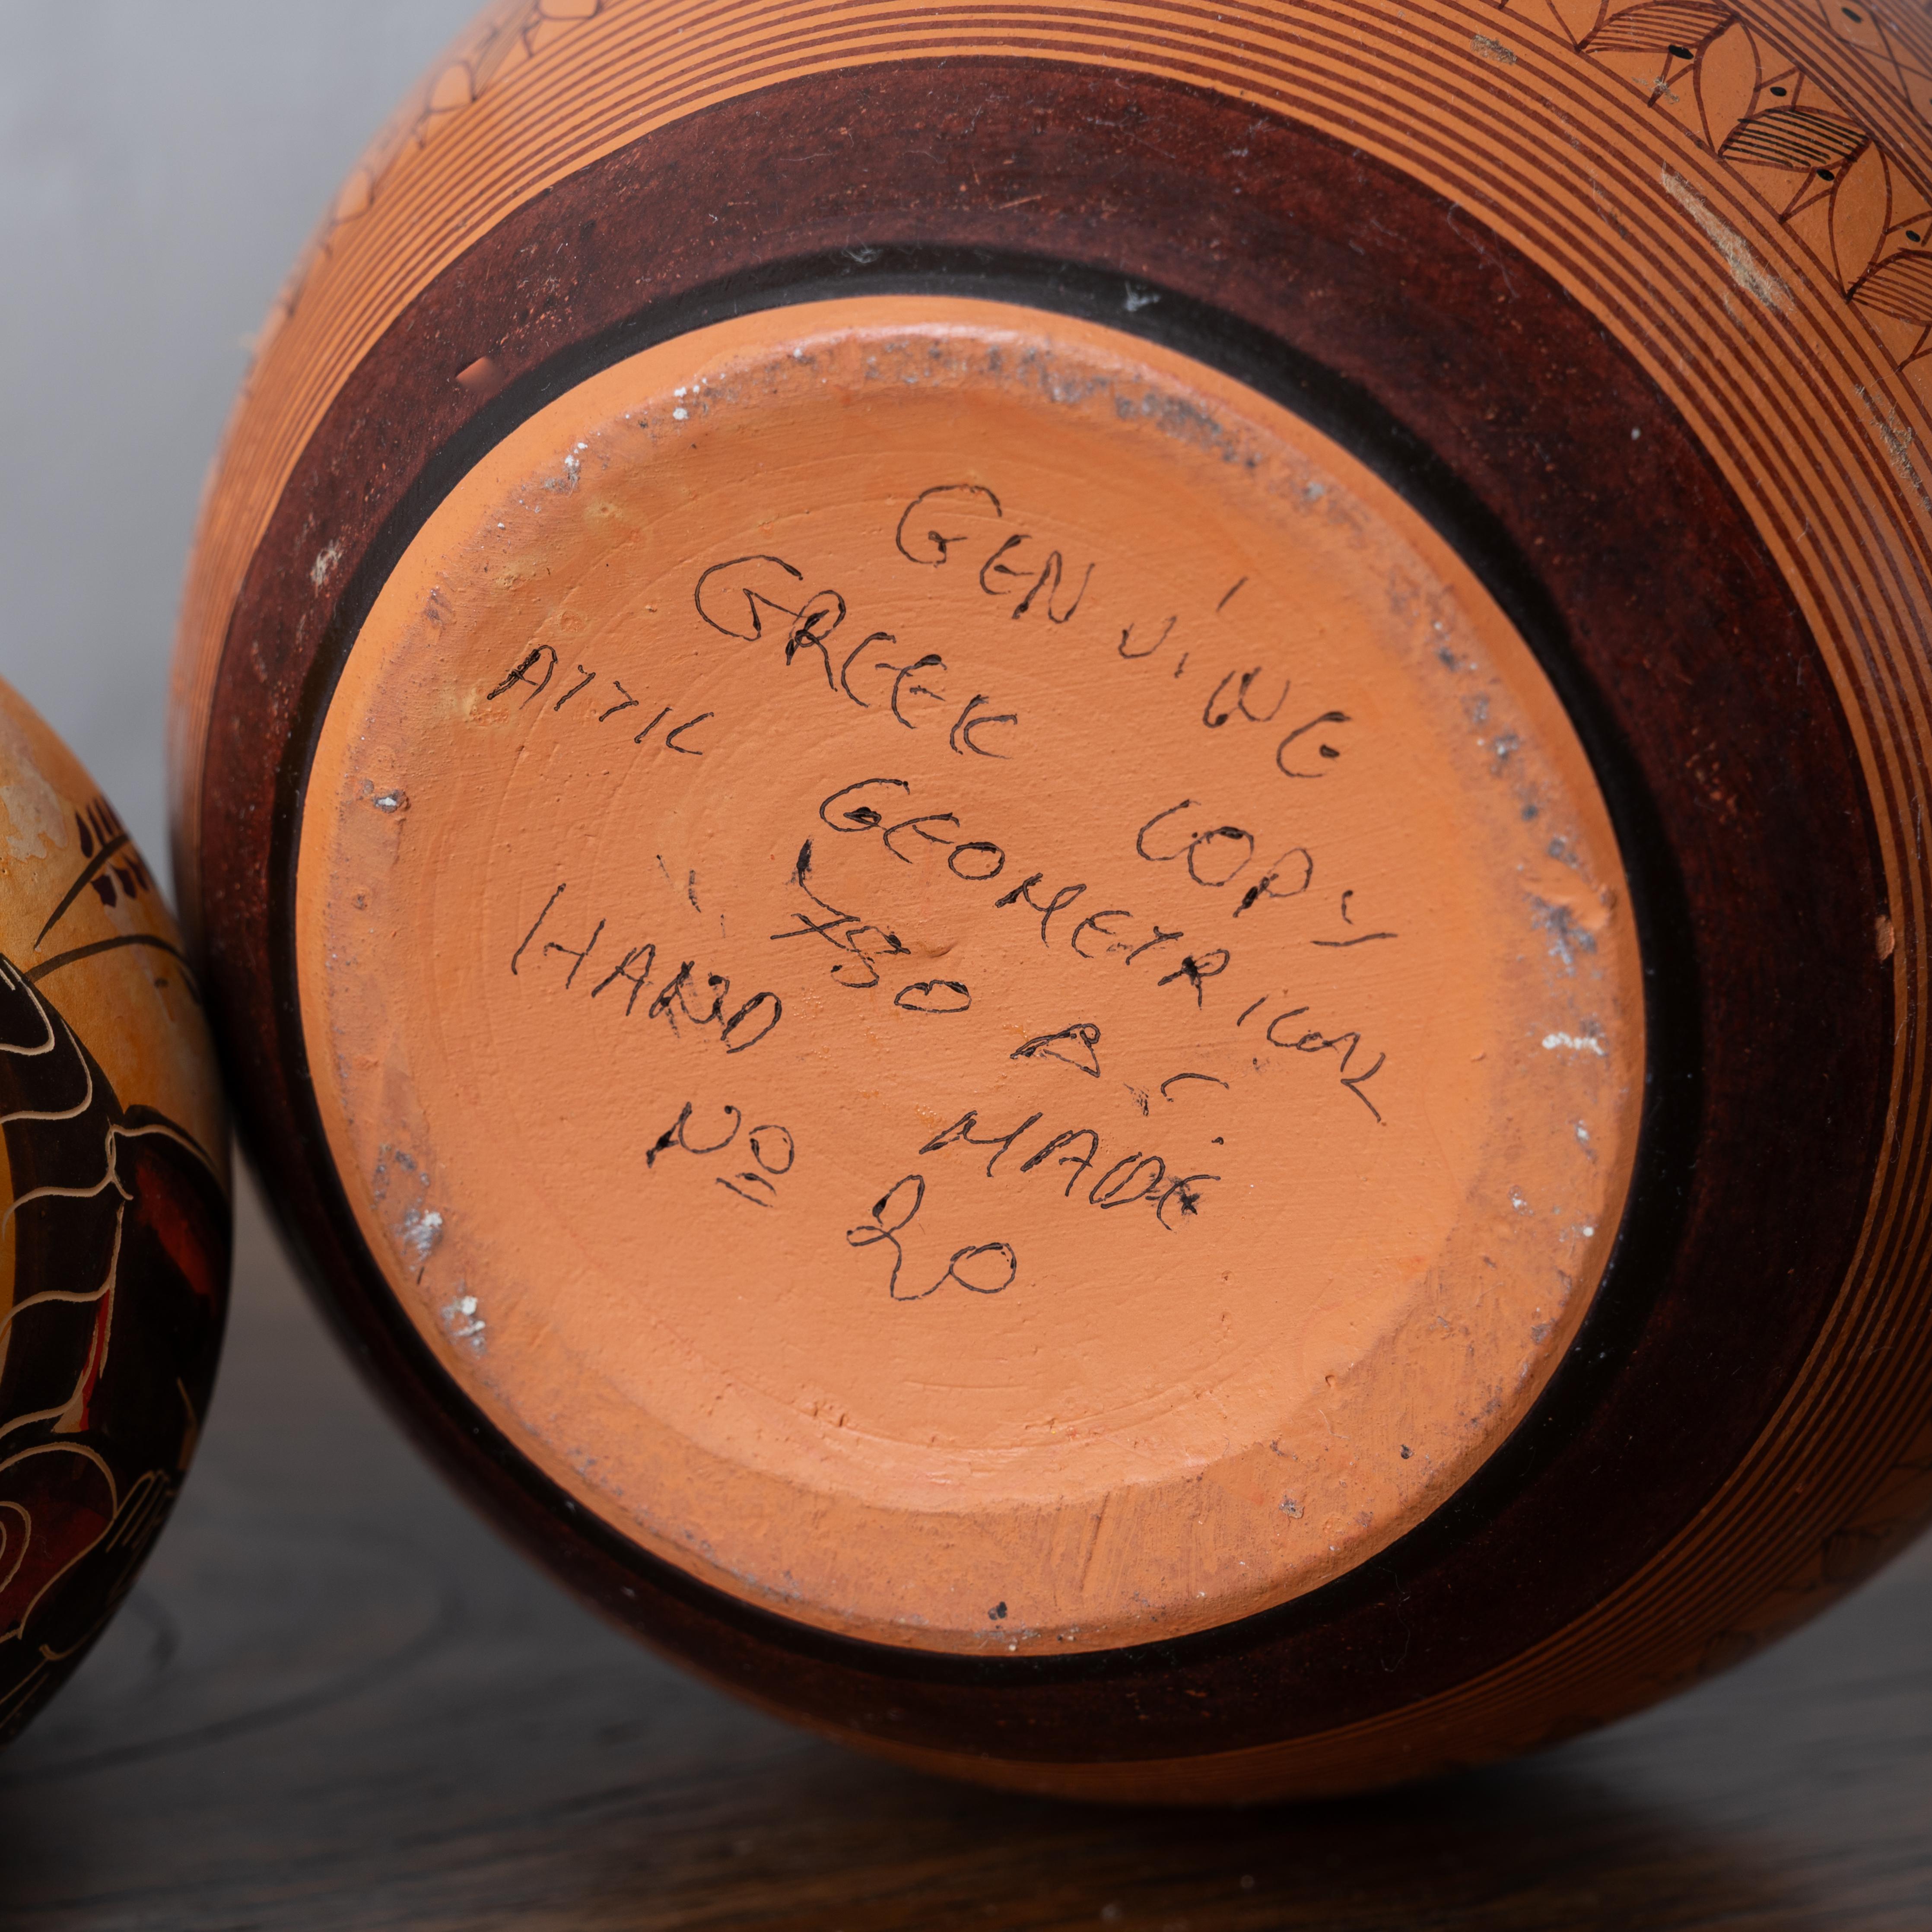 GENUINE
GREEK COPY
ATTIC GEOMETRICAL
750 B.C.
HAND MADE
Nº 20